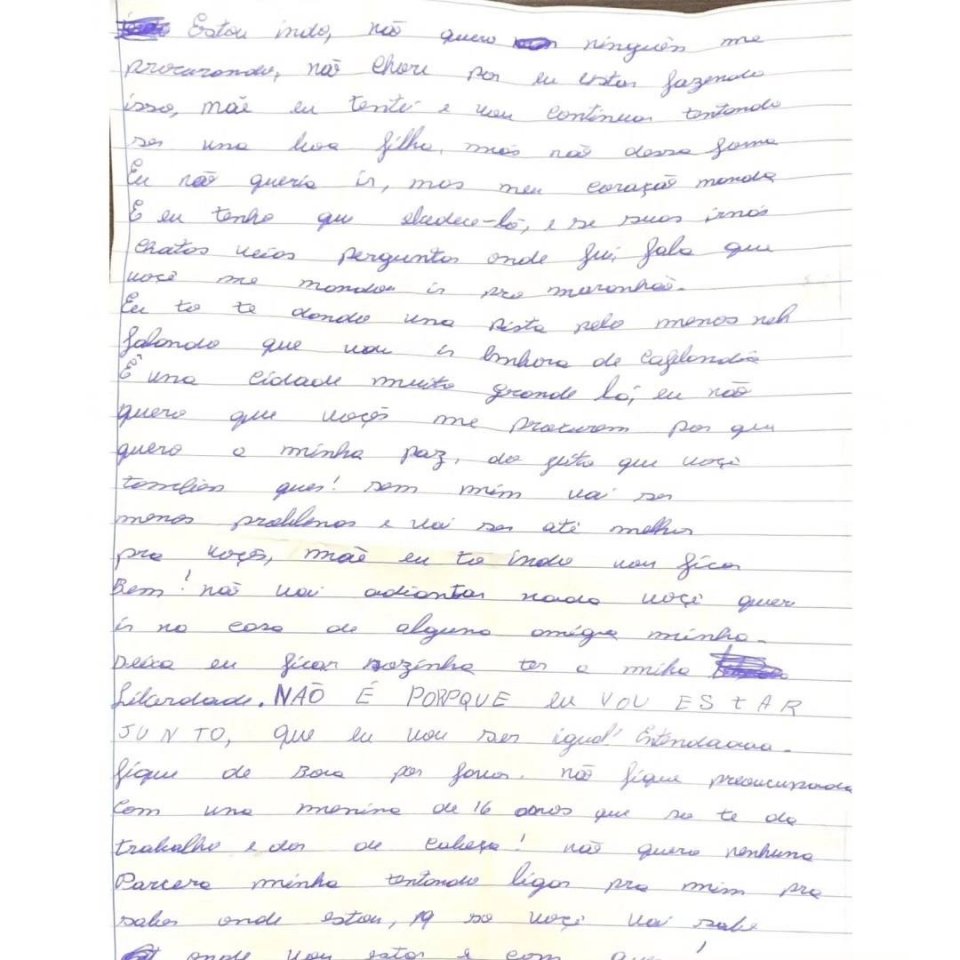 Estou indo, não quero ninguén me
procurando, não chore por eu estar fazendo
isso, mãe eu tentei e vou continuar tentando
ser una boa filha, mas não dessa forma
Eu não queria ir, mas meu coração manda
E eu tenho que obedece-lo, e se suas irmãs
chatas perguntar onde fui, fala que
você me mandou ir pro maranhão.
Eu to te dando una pista pelo menos neh
falando que vou ir de cafelandia
É una cidade muito grande lá, eu não
quero que voçês me procurem por que
quero a minha paz, do jeito que voçê
tambien quer! sem mim vai ser
menos problemas e vai ser até melhor
pra voçês, mãe eu to indo vou ficar
Bem! não vai adiantar nada voçê quer
ir na casa de alguna amiga minha.
Deixa eu ficar sozinha ter a miha
Liberdade. NÃO É PORPQUE EU VOU ESTAR
JUNTO, que eu vou ser igual!
fique de Boa por favor. não fique preocupada
Com una menina de 16 anos que so te da
trabalho e dor de cabeça! não quero nenhuna
Parcera minha tentando ligar pra mim pra
saber onde estou, so voçê vai sabe
onde vou estar e com quem!